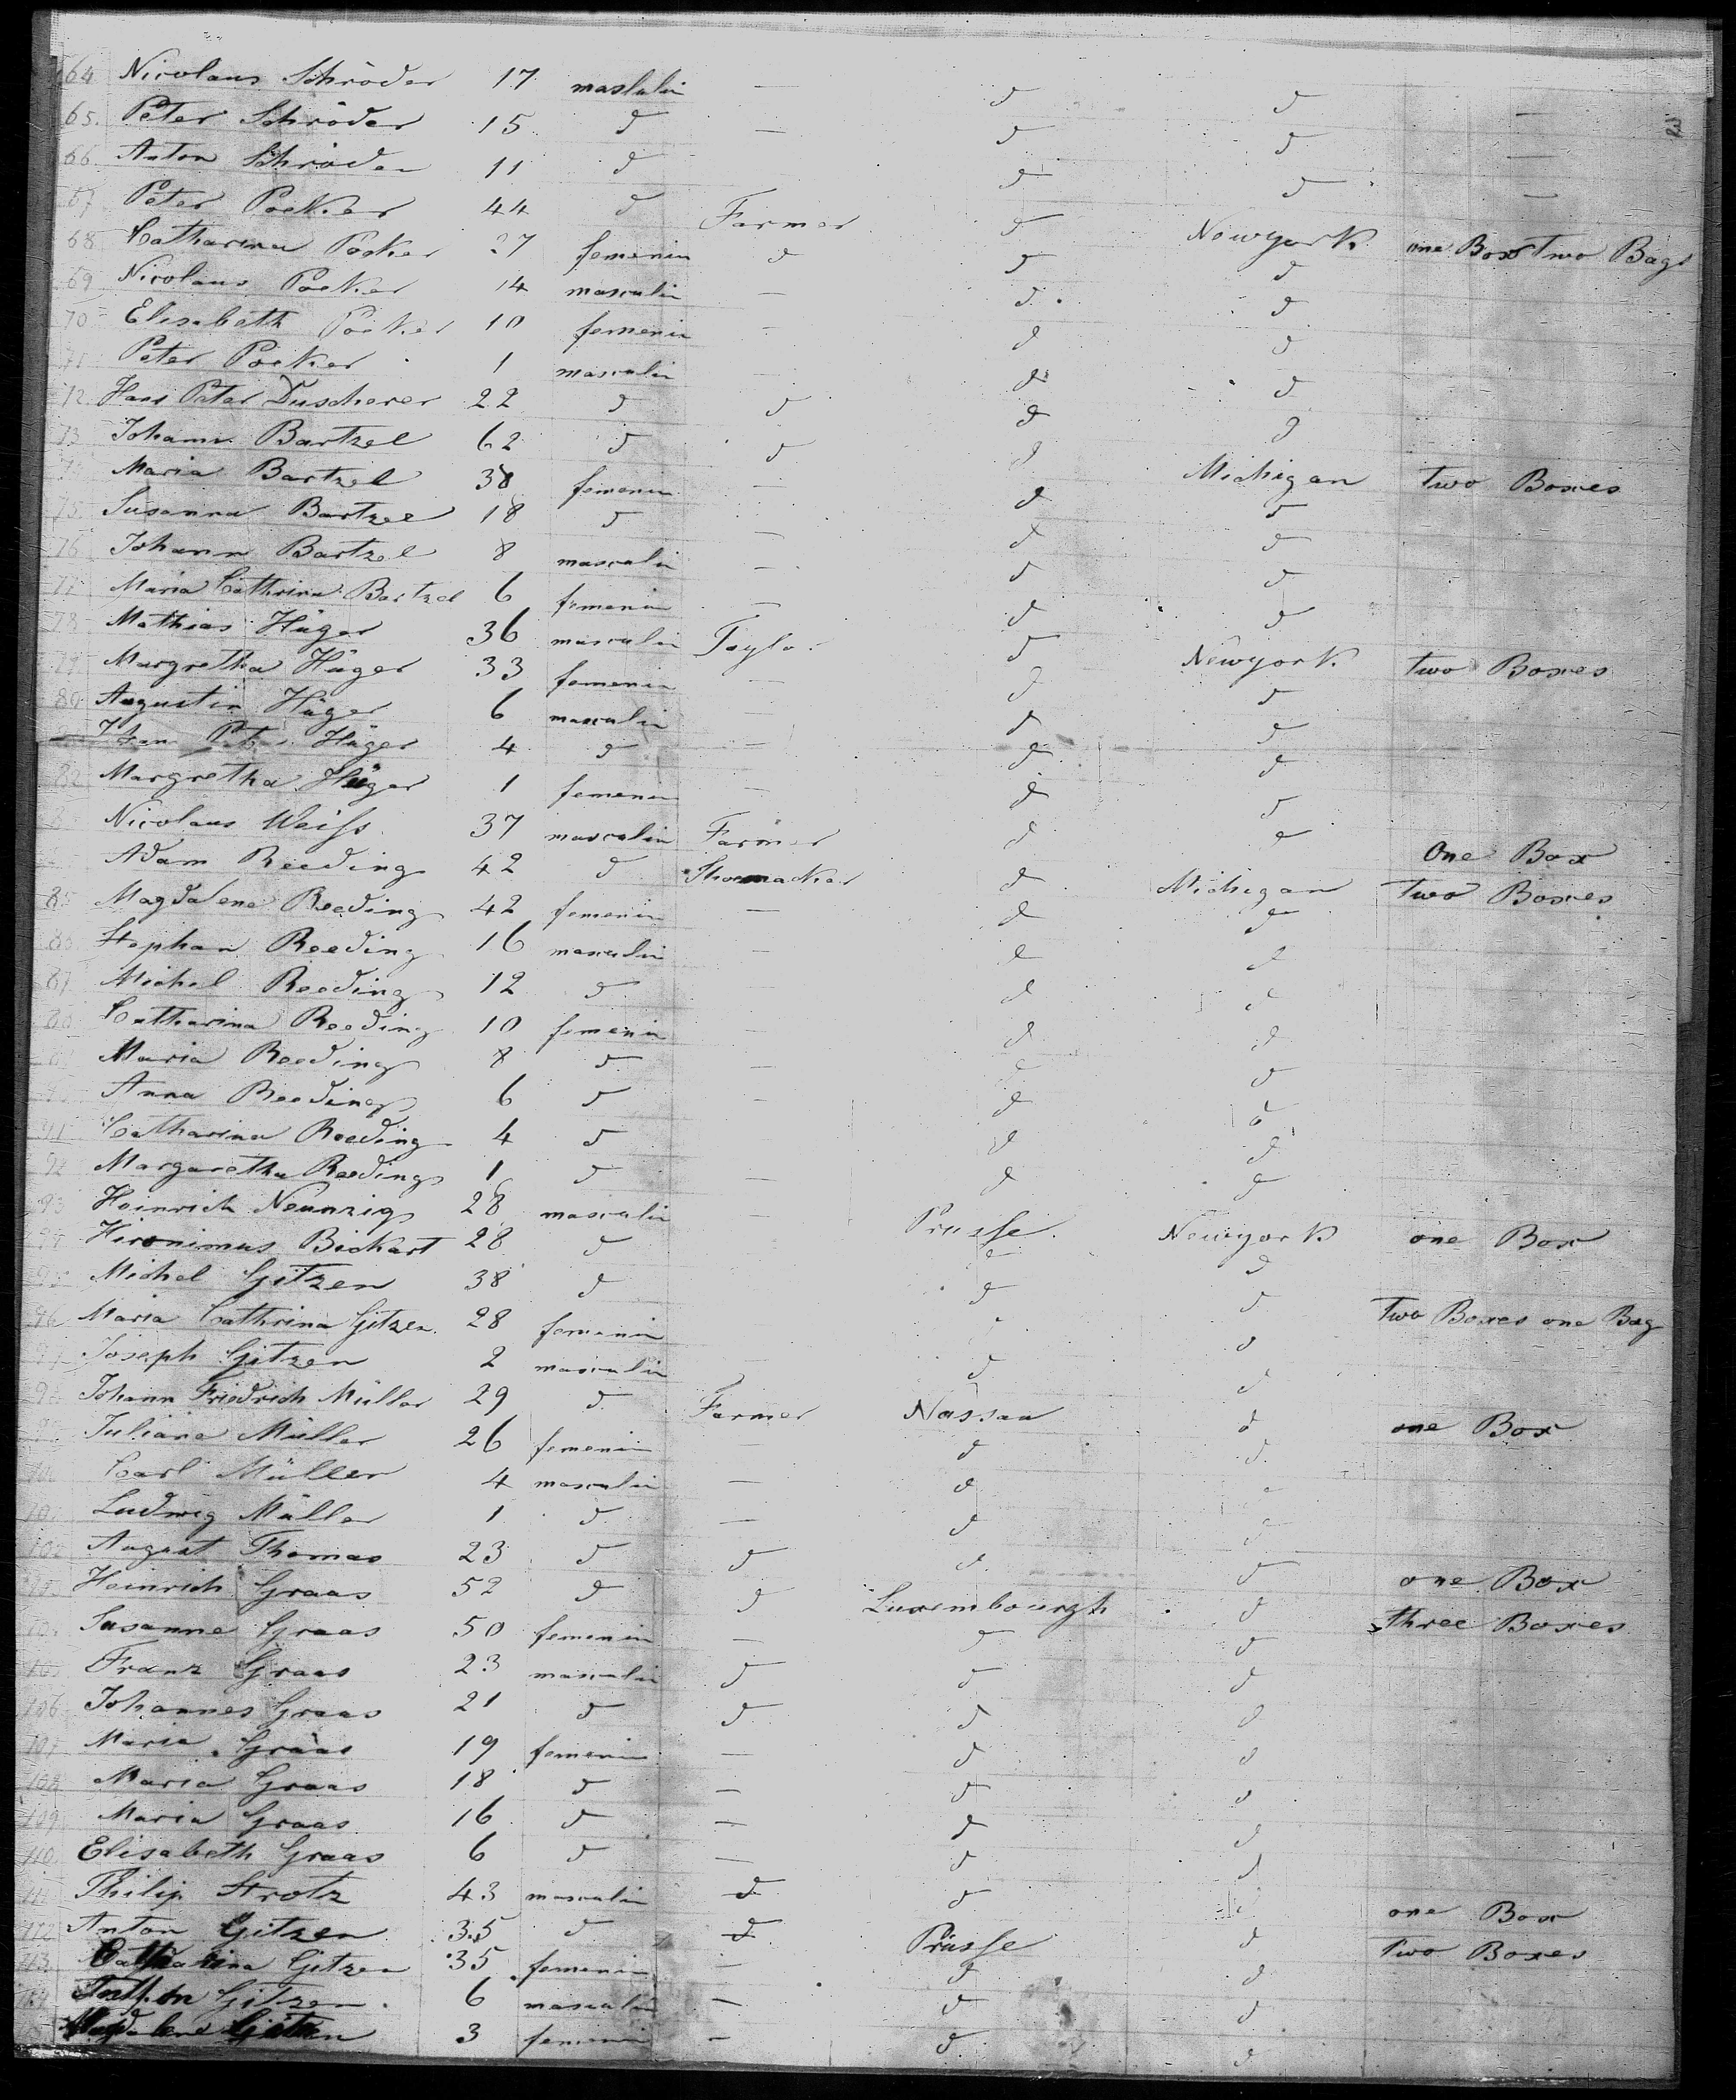 64 Nicolaus Schröder 17 maslulin — d d —
65. Peter Schröder 15 d — d d —
66 Anton Schröder 11 d d d —
67 Peter Poeker 44 d Farmer d Newyork one Box Two Bags
68 Catharina Poeker 27 femenin d d d
69 Nicolaus Poeker 14 masculin — d d
70 Elisabeth Poeker 10 femenin — d d
71 Peter Poeker 1 masculin — d d
72. Hans Peter Duscherer 22 d d d d
73 Johann Bartzel 62 d d d Michigan two Boxes
Maria Bartzel 38 femenin — d d
75 Susanna Bartzel 18 d — d d
76 Johann Bartzel 8 masculin — d d
77 Maria Cathrina Bartzel 6 femenin — d d
78 Mathias Häger 36 masculin Taylor d Newyork two Boxes
79 Margretha Häger 33 femenin — d d
80 Augustin Häger 6 masculin — d d
Johan Peter Häger 4 d — d d
82 Margretha Häger 1 femenin — d d
Nicolaus Weiss 37 masculin Farmer d d One Box
Adam Reeding 42 d Shoemacker d Michigan Two Boxes
85 Magdalena Reeding 42 femenin — d d
86 Stephan Reeding 16 masculin — d d
87 Michel Reeding 12 d d d
88 Catharina Reeding 10 femenin d d
89 Maria Reeding 8 d — d d
Anna Reeding 6 d — d d
91 Catharina Reeding 4 d d d
92 Margaretha Reeding 1 d — d d
93 Heinrich Neunzig 28 masculin — Prusse. Newyork one Box
94 Hironimus Bickart 28 d d d
95 Michel Gitzen 38 d d d Two Boxes one Bag
96 Maria Cathrina Gitzen. 28 femenin d d
97 Joseph Gitzen 2 masculin — d d
98 Johann Friedrich Müller 29 d Farmer Nassau d one Box
Juliana Müller 26 femenin — d d
100 Carl Müller 4 masculin — d d
101 Ludwig Müller 1 d — d d
102 August Thomas 23 d d d d one Box
103 Heinrich Graas 52 d d Luxembourgh d three Boxes
104 Susanna Graas 50 femenin — d d
105 Franz Graas 23 masculin d d d
106 Johannes Graas 21 d d d d
107 Maria Graas 19 femenin — d d
108 Maria Graas 18 d — d d
109 Maria Graas 16 d — d d
110. Elisabeth Graas 6 d — d d
111 Philip Strotz 43 masculin d d d one Box
112 Anton Gitzen 35 d d Prusse d Two Boxes
113 Catharina Gitzen 35 femenin — d d
114 Anton Gitzen 6 masculin — d d
Magdalena Gitzen 3 femenin — d d